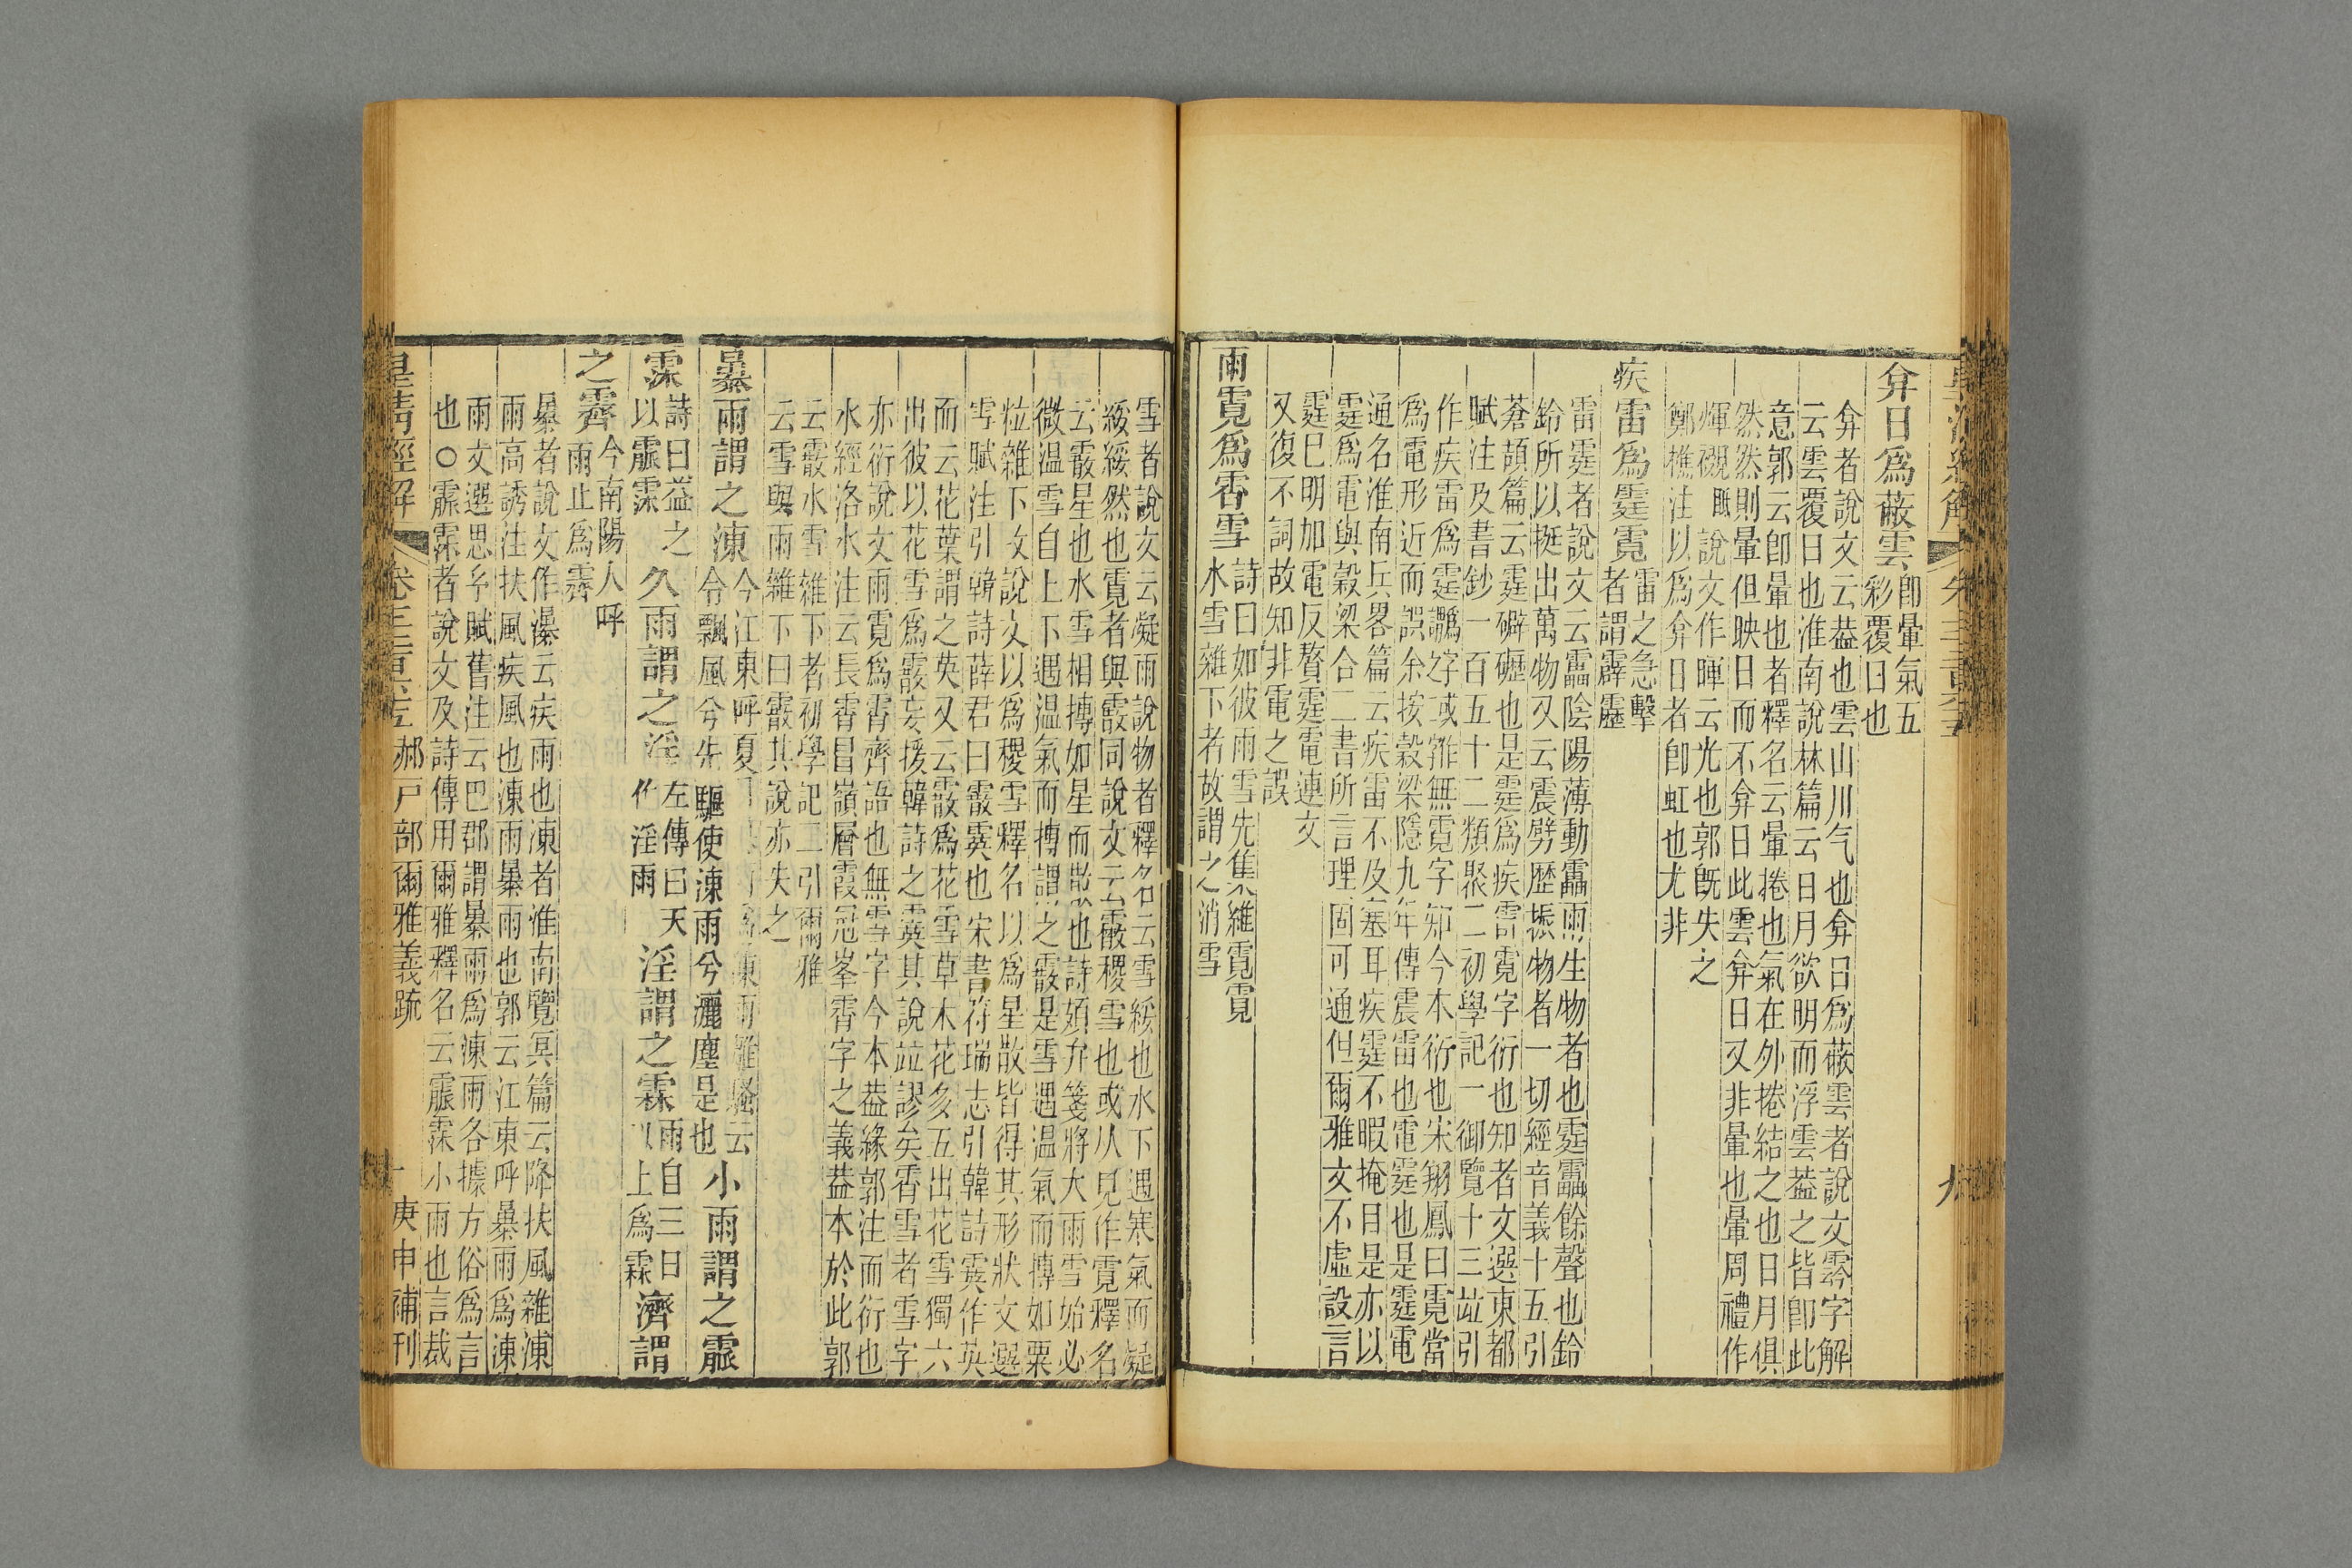 弇日爲蔽雲
卽暈氣五
彩覆日也
弇者說文云葢也雲山川气也弇日爲蔽雲者說文雺字解
云雲覆日也淮南說林篇云日月欲明而浮雲葢之皆卽此
意郭云卽暈也者釋名云暈捲也氣在外捲結之也日月俱
然然則暈但映日而不弇日此雲弇日又非暈也暈周禮作
煇䙾眂說文作暉云光也郭旣失之
鄭樵注以爲弇日者卽虹也尤非
疾雷爲霆霓
雷之急擊
者謂霹靂
雷霆者說文云靁陰陽薄動靁雨生物者也霆靁餘聲也鈴
鈴所以挺出萬物又云震劈歷振物者一切經音義十五引
蒼頡篇云霆礔礰也是霆爲疾雷霓字衍也知者文選東都
賦注及書鈔一百五十二類聚二初學記一御覽十三竝引
作疾雷爲霆䨓字或雜無霓字知今本衍也宋翔鳳曰霓當
爲電形近而誤余按穀梁隱九年傳震雷也電霆也是霆電
通名淮南兵畧篇云疾雷不及塞耳疾霆不暇掩目是亦以
霆爲電與穀梁合二書所言理固可通但爾雅文不虛設言
霆已明加電反贅霆電連文
又復不詞故知非電之誤
雨霓爲霄雪
詩曰如彼雨雪先集維霓霓
水雪雜下者故謂之消雪
雪者說文云凝雨說物者釋名云雪綏也水下遇寒氣而凝
綏綏然也霓者與霰同說文云霰稷雪也或从見作霓釋名
云霰星也水雪相摶如星而散也詩頍弁箋將大雨雪始必
微温雪自上下遇温氣而摶謂之霰是雪遇温氣而摶如粟
粒雜下故說文以爲稷雪釋名以爲星散皆得其形狀文選
雪賦注引韓詩薛君曰霰霙也宋書符瑞志引韓詩霙作英
而云花葉謂之英又云霰爲花雪草木花多五出花雪獨六
出彼以花雪爲霰妄援韓詩之霙其說竝謬矣霄雪者雪字
亦衍說文雨霓爲霄齊語也無雪字今本葢緣郭注而衍也
水經洛水注云長霄冒嶺層霞冠峯霄字之義葢本於此郭
云霰水雪雜下者初學記二引爾雅
云雪與雨雜下曰霰其說亦失之
暴雨謂之涷
今江東呼夏月暴雨爲涷雨離騷云
令飄風兮先驅使涷雨兮灑塵是也
小雨謂之霢
霂
詩曰益之
以霢霂
久雨謂之淫
左傳曰天
作淫雨
淫謂之霖
雨自三日
以上爲霖
濟謂
之霽
今南陽人呼
雨止爲霽
暴者說文作瀑云疾雨也涷者淮南覽冥篇云降扶風雜涷
雨高誘注扶風疾風也涷雨暴雨也郭云江東呼暴雨爲涷
雨文選思玄賦舊注云巴郡謂暴雨爲涷雨各據方俗爲言
也○霢霂者說文及詩傳用爾雅釋名云霢霂小雨也言裁
皇淸經解
郝戸部爾雅義疏
庚申補刊